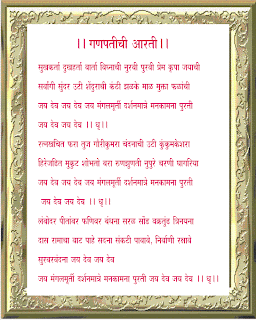 ।। गणपतीची आरती ।।
सुखकर्ता दुखहर्ता वार्ता विघ्नाची नुरवी पुरवी प्रेम कृपा जयाची
सर्वांगी सुंदर उटी शेंदुराची कंठी झळके माळ मुक्ता फळांची
जय देव जय देव जय मंगलमूर्ती दर्शनमात्रे मनकामना पुरती
जय देव जय देव ।। धृ ।।
रत्नखचित फरा तुज गौरीकुमरा चंदनाची उटी कुंकुमकेशरा
हिरेजडित मुकूट शोभतो बरा रुणझुणती नुपुरे चरणी घागरिया
जय देव जय देव जय मंगलमूर्ती दर्शनमात्रे मनकामना पुरती
जय देव जय देव ।। धृ ।।
लंबोदर पीतांबर फणिवर बंधना सरळ सोंड वक्रतुंड त्रिनयना
दास रामाचा वाट पाहे सदना संकटी पावावे, निर्वाणी रक्षावे
सुरवरवंदना जय देव जय देव
जय मंगलमूर्ती दर्शनमात्रे मनकामना पुरती जय देव जय देव ।। धृ ।।